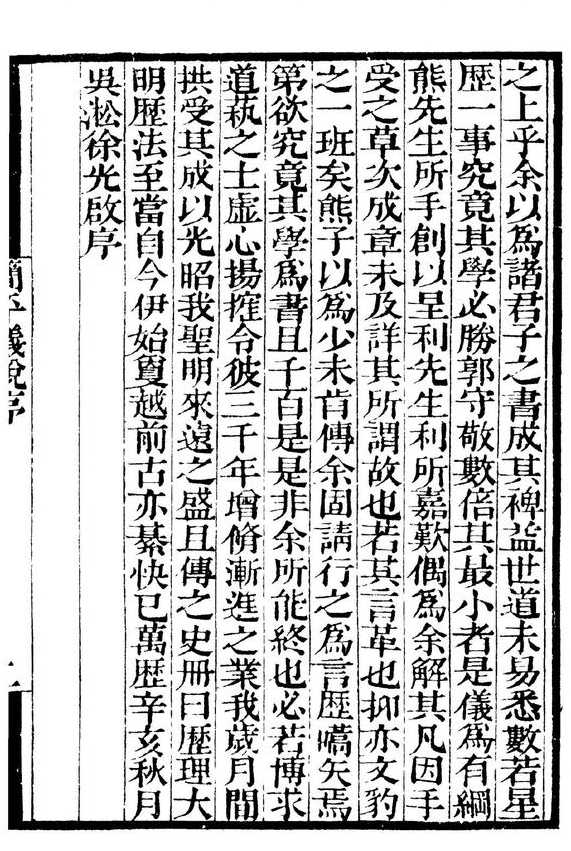 之上乎余以爲諸君子之書成其裨益世道未易悉數若星
歷一事究竟其學必勝郭守敬數倍其最小者是儀爲有綱
熊先生所手創以呈利先生利所嘉歎偶爲余解其凡因手
受之草次成章未及詳其所謂故也若其言革也抑亦文豹
之一班矣熊子以爲少未肯傳余固請行之爲言歷嚆矢焉
第欲究竟其學爲書且千百是是非余所能終也必若博求
道蓺之士虛心揚搉令彼三千年增脩漸進之業我歲月間
拱受其成以光昭我聖明來遠之盛且傳之史冊曰歷理大
明歷法至當自今伊始敻越前古亦綦快已萬歷辛亥秋月
吳淞徐光啟序
簡平儀說序